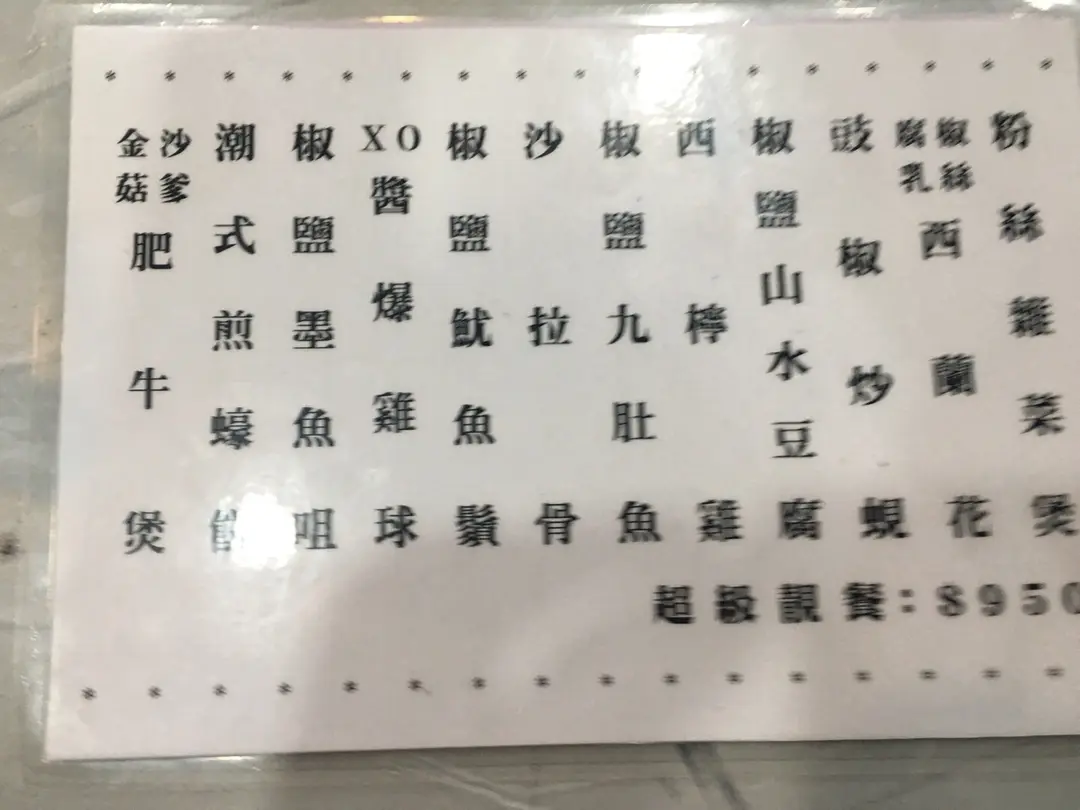 粉絲雜菜煲
椒絲腐乳西蘭花
豉椒炒蜆
椒鹽山水豆腐
西檸雞
椒鹽九肚魚
沙拉骨
椒鹽魷魚鬚
XO醬爆雞球
椒鹽墨魚咀
潮式煎蠔餅
沙爹金菇肥牛煲
超級靚餐:$950